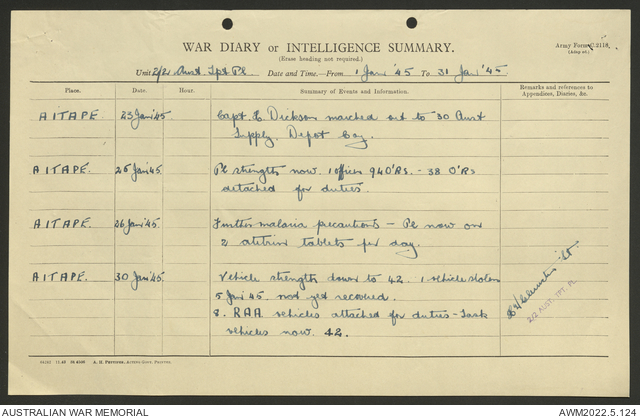 WAR DIARY or INTELLIGENCE SUMMARY.
(Erase heading not required.)
Army Form C.2118.
(Adap. ed.)
Unit 2/2 Aust Tpt Pl. Date and Time.—From 1 Jan '45 To 31 Jan '45
Place. Date. Hour. Summary of Events and Information. Remarks and references to Appendices, Diaries, &c.
AITAPE. 23 Jan '45 Capt. C. Dickson marched out to 30 Aust
Supply Depot Coy.
AITAPE. 25 Jan '45 Pl strength now. 1 officer 94 O'RS. - 38 O'Rs
detached for duties.
AITAPE. 26 Jan '45 Further malaria precautions - Pl now on
2 atebrin tablets per day.
AITAPE. 30 Jan '45. Vehicle strength down to 42. 1 vehicle stolen
5 Jan 45 not yet recovered.
8. RAA vehicles attached for duties - Task
vehicles now 42.
Lt
2/2 AUST. TPT. PL.
A. H. PETTIFER, ACTING GOVT. PRINTER.
AUSTRALIAN WAR MEMORIAL
AWM2022.5.124